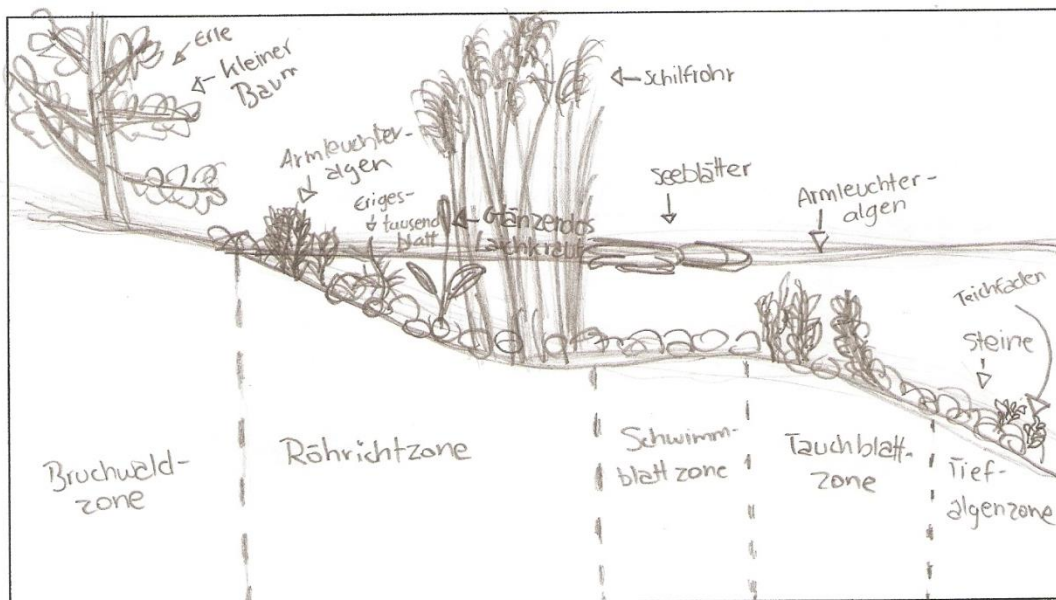 Erle
kleiner
Baum
Armleuchter-
algen
Eriges-
tausend
blatt
Glänzendes
Laichkraut
Schilfrohr
Seeblätter
Armleuchter-
algen
Teichfaden
Steine
Bruchwald-
zone
Röhrichtzone
Schwimm-
blattzone
Tauchblatt-
zone
Tief-
algenzone